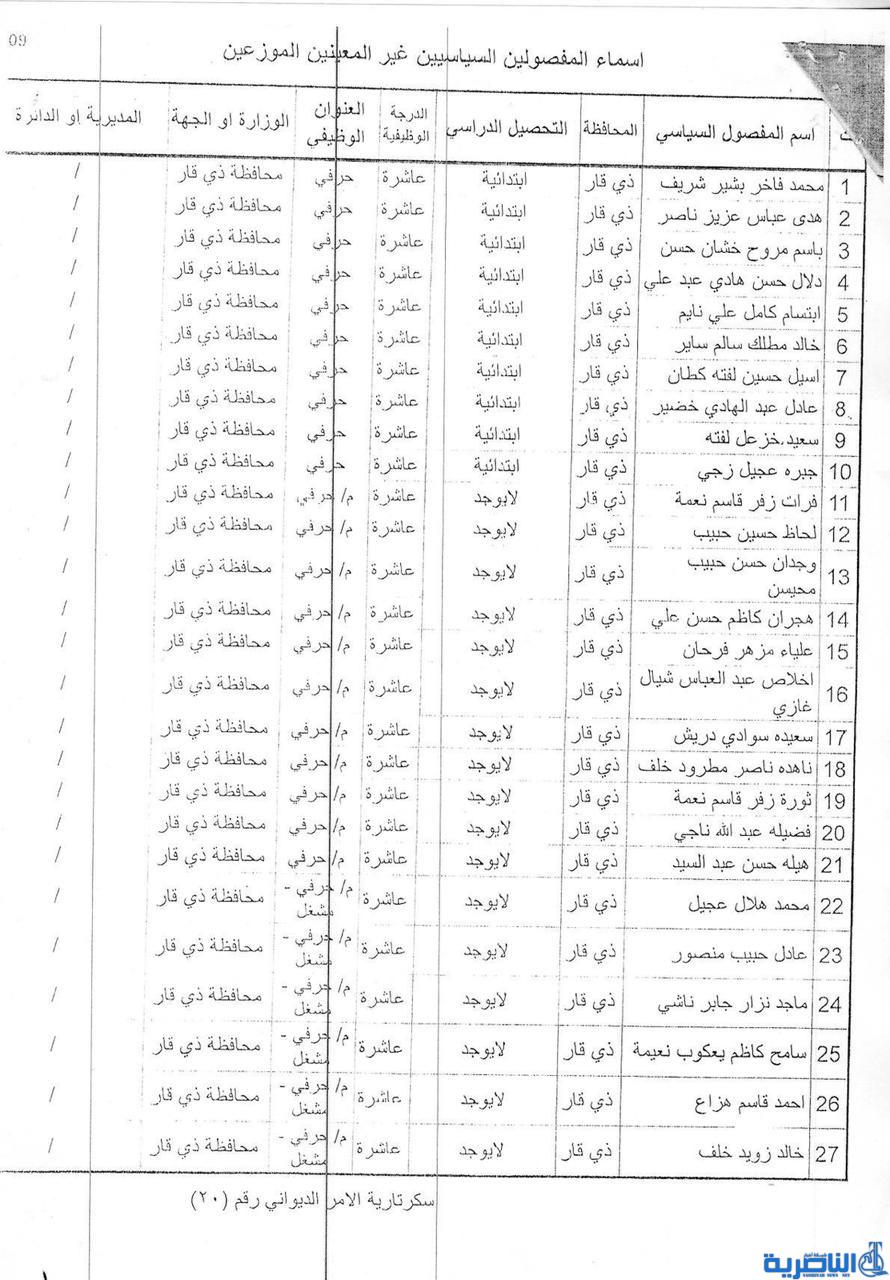 09
اسماء المفصولين السياسيين غير المعينين الموزعين
ت اسم المفصول السياسي المحافظة التحصيل الدراسي الدرجة الوظيفية العنوان الوظيفي الوزارة او الجهة المديرية او الدائرة
1 محمد فاخر بشير شريف ذي قار ابتدائية عاشرة حرفي محافظة ذي قار /
2 هدى عباس عزيز ناصر ذي قار ابتدائية عاشرة حرفي محافظة ذي قار /
3 باسم مروح خشان حسن ذي قار ابتدائية عاشرة حرفي محافظة ذي قار /
4 دلال حسن هادي عبد علي ذي قار ابتدائية عاشرة حرفي محافظة ذي قار /
5 ابتسام كامل علي نايم ذي قار ابتدائية عاشرة حرفي محافظة ذي قار /
6 خالد مطلك سالم ساير ذي قار ابتدائية عاشرة حرفي محافظة ذي قار /
7 اسيل حسين لفته كطان ذي قار ابتدائية عاشرة حرفي محافظة ذي قار /
8 عادل عبد الهادي خضير ذي قار ابتدائية عاشرة حرفي محافظة ذي قار /
9 سعيد خزعل لفته ذي قار ابتدائية عاشرة حرفي محافظة ذي قار /
10 جبره عجيل زجي ذي قار ابتدائية عاشرة حرفي محافظة ذي قار /
11 فرات زفر قاسم نعمة ذي قار لايوجد عاشرة م/ حرفي محافظة ذي قار /
12 لحاظ حسين حبيب ذي قار لايوجد عاشرة م/ حرفي محافظة ذي قار /
13 وجدان حسن حبيب محيسن ذي قار لايوجد عاشرة م/ حرفي محافظة ذي قار /
14 هجران كاظم حسن علي ذي قار لايوجد عاشرة م/ حرفي محافظة ذي قار /
15 علياء مزهر فرحان ذي قار لايوجد عاشرة م/ حرفي محافظة ذي قار /
16 اخلاص عبد العباس شيال غازي ذي قار لايوجد عاشرة م/ حرفي محافظة ذي قار /
17 سعيده سوادي دريش ذي قار لايوجد عاشرة م/ حرفي محافظة ذي قار /
18 ناهده ناصر مطرود خلف ذي قار لايوجد عاشرة م/ حرفي محافظة ذي قار /
19 ثورة زفر قاسم نعمة ذي قار لايوجد عاشرة م/ حرفي محافظة ذي قار /
20 فضيله عبد الله ناجي ذي قار لايوجد عاشرة م/ حرفي محافظة ذي قار /
21 هيله حسن عبد السيد ذي قار لايوجد عاشرة م/ حرفي محافظة ذي قار /
22 محمد هلال عجيل ذي قار لايوجد عاشرة م/ حرفي - مشغل محافظة ذي قار /
23 عادل حبيب منصور ذي قار لايوجد عاشرة م/ حرفي - مشغل محافظة ذي قار /
24 ماجد نزار جابر ناشي ذي قار لايوجد عاشرة م/ حرفي - مشغل محافظة ذي قار /
25 سامح كاظم يعكوب نعيمة ذي قار لايوجد عاشرة م/ حرفي - مشغل محافظة ذي قار /
26 احمد قاسم هزاع ذي قار لايوجد عاشرة م/ حرفي - مشغل محافظة ذي قار /
27 خالد زويد خلف ذي قار لايوجد عاشرة م/ حرفي - مشغل محافظة ذي قار /
سكرتارية الامر الديواني رقم (٢٠)
شبكة أخبار
الناصرية
NASIRIYAH NEWS NET